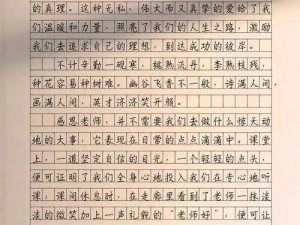 的真理。这种无私，伟大而又真挚的爱给了我
们温暖和力量，照亮了我们的人生之路，激励
我们去追求自己的理想，到达成功的彼岸。
不计辛勤一砚寒，桃熟流丹，李熟枝残，
种花容易种树难。幽谷飞香不一般，诗满人间，
画满人间，英才济济笑开颜。
感恩老师，并不需要我们去做什么惊天动
地的大事，它表现在日常的点点滴滴中。课堂
上，一道坚定自信的目光，一个轻轻的点头，
便可证明了我们全身心地投入我们在专心地听
课；课间休息时，在走廊里看到了老师一抹淡
淡的微笑加上一声礼貌的“老师好”，便可让